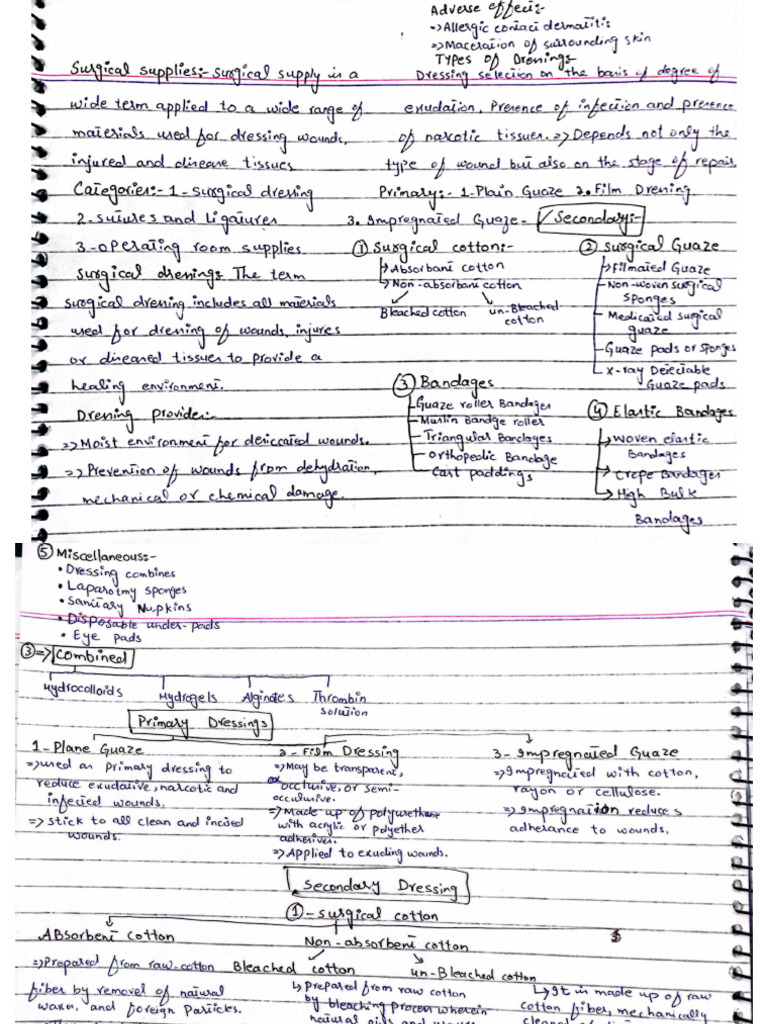 Surgical supplies:- Surgical supply is a
wide term applied to a wide range of
materials used for dressing wounds,
injured and disease tissues
Categories:- 1- surgical dressing
2- sutures and Ligatures
3- operating room supplies
Surgical dressings The term
surgical dressing includes all materials
used for dressing of wounds, injures
or diseased tissues to provide a
healing environment.
Dressing provide:-
=> Moist environment for desiccated wounds.
=> Prevention of wounds from dehydration,
mechanical or chemical damage.
Adverse effect:-
=> Allergic contact dermatitis
=> Maceration of surrounding skin
Types of Dressings
Dressing selection on the basis of degree of
exudation, Presence of infection and presence
of narcotic tissues. => Depends not only the
type of wound but also on the stage of repair
Primary:- 1-Plain Guaze 2. Film Dressing
3. Impregnated Guaze- Secondary:-
① Surgical cotton:-
Absorbant cotton
Non-absorbant cotton
Bleached cotton
un-Bleached
cotton
② Surgical Guaze
Filmated Guaze
Non-woven surgical
sponges
Medicated surgical
guaze
Guaze pads or sponges
X-ray Detectable
Guaze pads
③ Bandages
Guaze roller Bandages
Muslin Bandge roller
Triangular Bandages
Orthopedic Bandage
Cast paddings
④ Elastic Bandages
Woven elastic
Bandages
Crepe Bandages
High Bulk
Bandages
⑤ Miscellaneous:-
• Dressing combines
• Laparotmy sponges
• Sanitary Nupkins
• Disposable under-pads
• Eye pads
③ => Combined
Hydrocolloids
Hydrogels
Alginates
Thrombin
solution
Primary Dressings
1- Plane Guaze
=> used as Primary dressing to
reduce exudative, narcotic and
infected wounds.
=> stick to all clean and incised
wounds.
2- Film Dressing
=> May be transparent,
or occlusive, or semi-
occulusive.
=> Made up of polyurethane
with acrylic or polyether
adhesives.
=> Applied to exuding wounds.
3- Impregnated Guaze
=> Impregnated with cotton,
rayon or cellulose.
=> Impregnation reduces
adherance to wounds.
Secondary Dressing
①- surgical cotton
Absorbent cotton
=> Prepared from raw-cotton
fiber by removel of natural
waxes, and foreign Particles.
Non-absorbent cotton
Bleached cotton
Prepared from raw cotton
by bleaching process wherein
natural oils and waxes
un-Bleached cotton
It is made up of raw
cotton fibes, mechanically
cleaned of